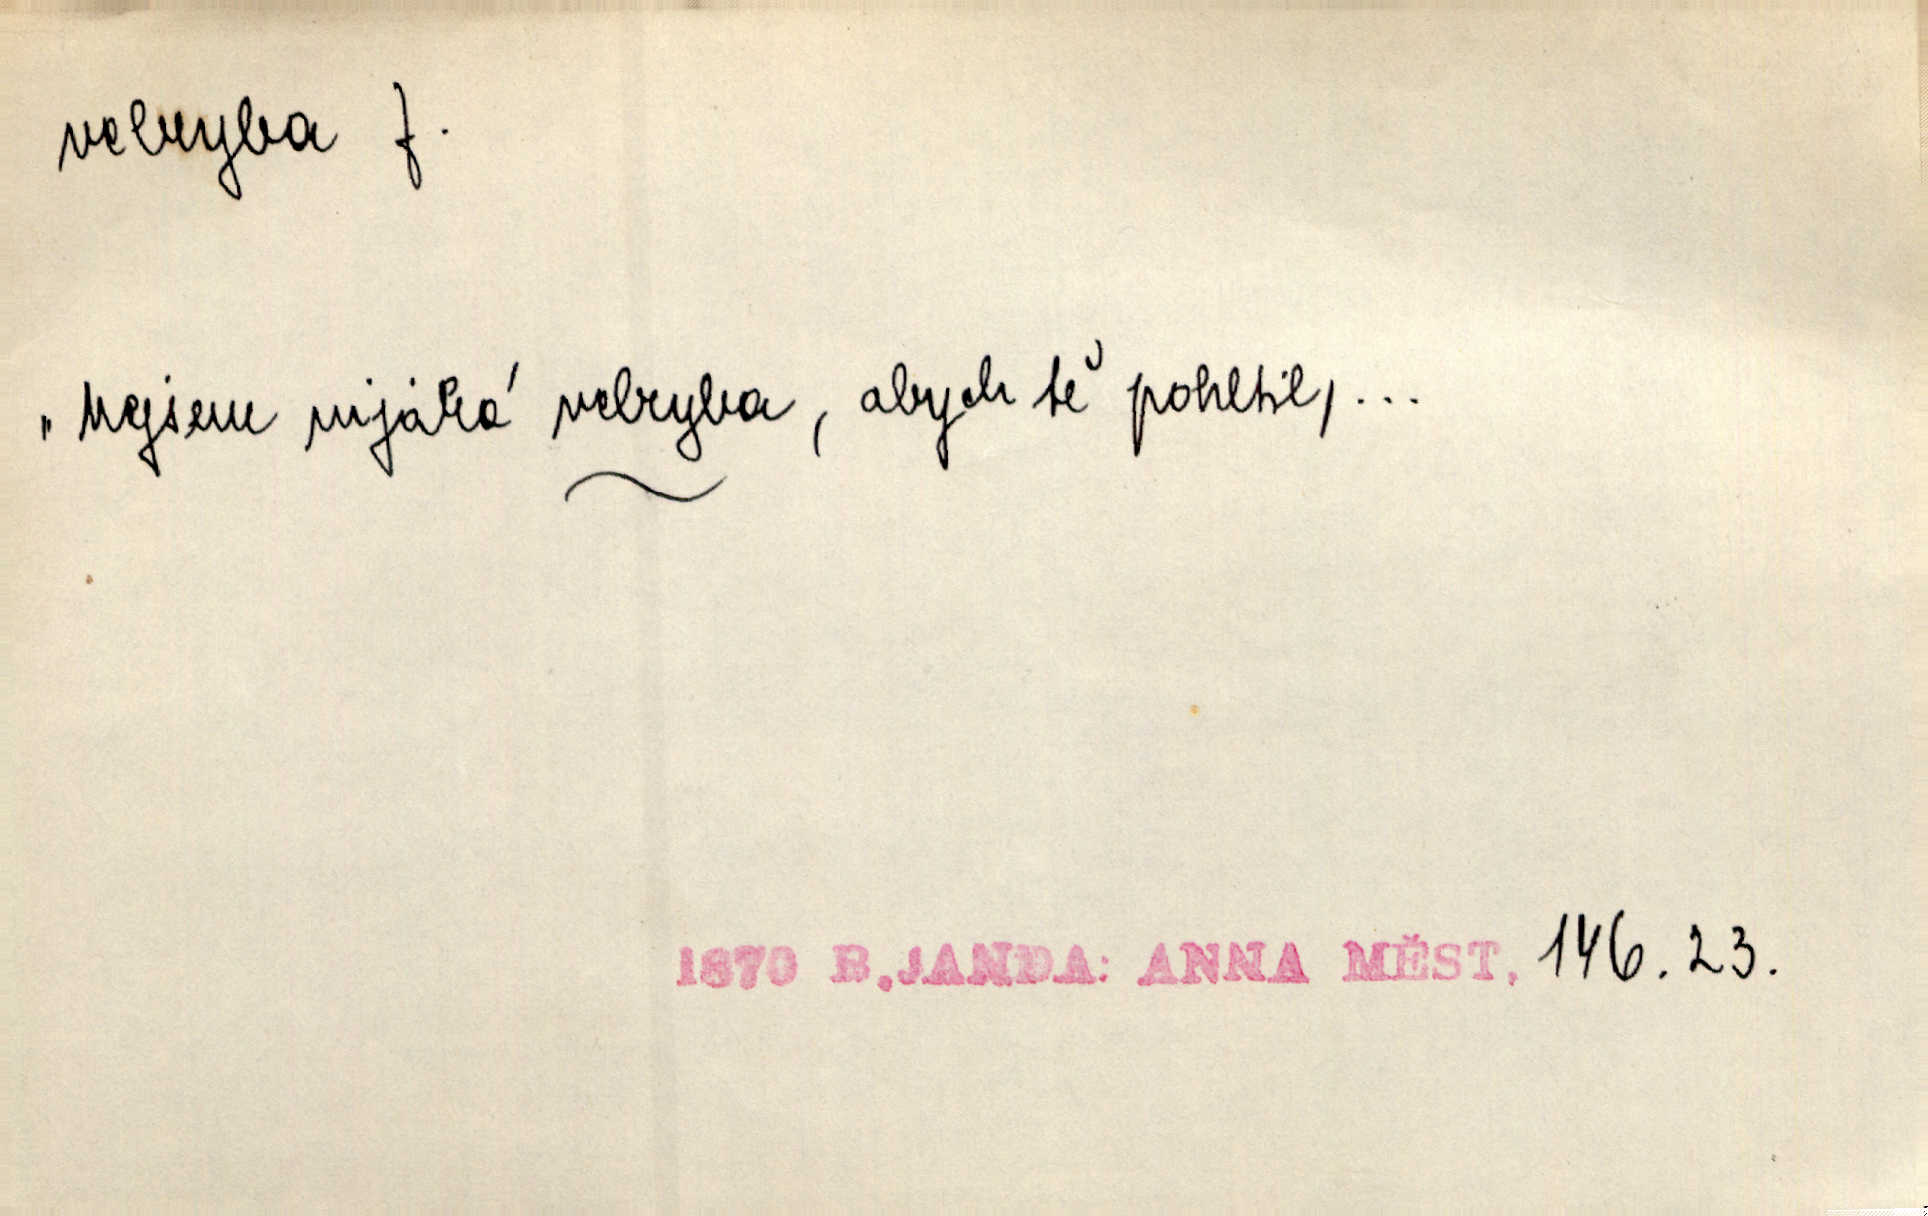 velryba f.
„Nejsem nijaká velryba, abych tě pohltil, ...
1870 B.JANDA: ANNA MĚST, 146. 23.